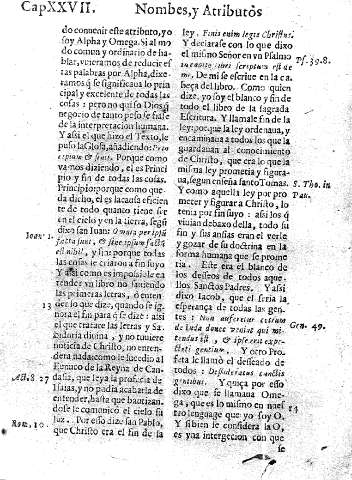 Cap.XXVII. Nombes, y Atributos
do convenir este atributo, yo
soy Alpha y Omega. Si al mo
do comun y ordinario de ha-
blar, uvieramos de reducir es
tas palabras por Alpha, dixe-
ramos q̃ se significaua lo prin
cipal y excelente de todas las
cosas: pero no quiso Dios q̃
negocio de tanto peso se fiase
de la interpretacion humana.
Y assi el que hizo el Texto, le
puso la Glosa, añadiendo: Prin
cipium & finis. Porque como
vamos diziendo, el es Princi
pio y fin de todas las cosas.
Principio; porque como que
da dicho, el es la causa eficien
te de todo quanto tiene ser
en el cielo y en la tierra, segũ
dixo san Iuan: Omnia per ipsũ
facta sunt, & sine ipso factũ
est nihil, y fin: porque todas
las cosas se criaron a fin suyo
Ioan. 1.
Y assi como es impossible en
tender vn libro no sabiendo
las primeras letras, o enten-
13 der lo que dize, quando se ig
nora el fin para q̃ se dize: assi
el que tratare las letras y Sa-
biduria divina, y no tuviere
noticia de Christo, no enten-
dera nada: como le sucedio al
Eunuco de la Reyna de Can-
Act. 8. 27 dasia, que leya la profecia de
Isaias, y no podia acabarla de
entender, hasta que bautizan-
dose le comunicó el cielo su
luz. Por esso dize san Pablo,
Rom. 10. que Christo era el fin de la
ley. Finis enim legis Christus.
Y declarase con lo que dixo
el mismo Señor en vn Psalmo
Ps. 39. 8.
In capite libri scriptum est de
me. De mi se escriue en la ca-
beça del libro. Como quien
dize, yo soy el blanco y fin de
todo el libro de la sagrada
Escritura. Y llamase fin de la
ley: porque la ley ordenaua, y
encaminaua a todos los que la
guardauan al conocimiento
de Christo, que era lo que la
misma ley prometia y figura-
ua, segun enseña santo Tomas.
S. Tho. in Pau.
Y como aquella ley por pro
meter y figurar a Christo, lo
tenia por fin suyo: assi los q̃
viuian debaxo della, todo su
fin y sus ansias eran el verle
y gozar de su doctrina en la
forma humana que se prome
tia. Este era el blanco de
los desseos de todos aque-
llos Santos Padres. Y assi
dixo Iacob, que el seria la
esperança de todas las gen-
tes: Non auferetur cetrum
de Iuda donec veniat qui mi-
Gen. 49.
tendus est, & ipse erit expe-
ctatio gentium. Y otro Profe
ta le llamó el desseado de
todos: Desideratus cunctis
gentibus. Y quiça por esso
dixo que se llamaua Ome-
ga, que es lo mismo en nues
14
tro lenguage que yo soy O.
Y si bien se considera la O,
es vna intergecion con que
se